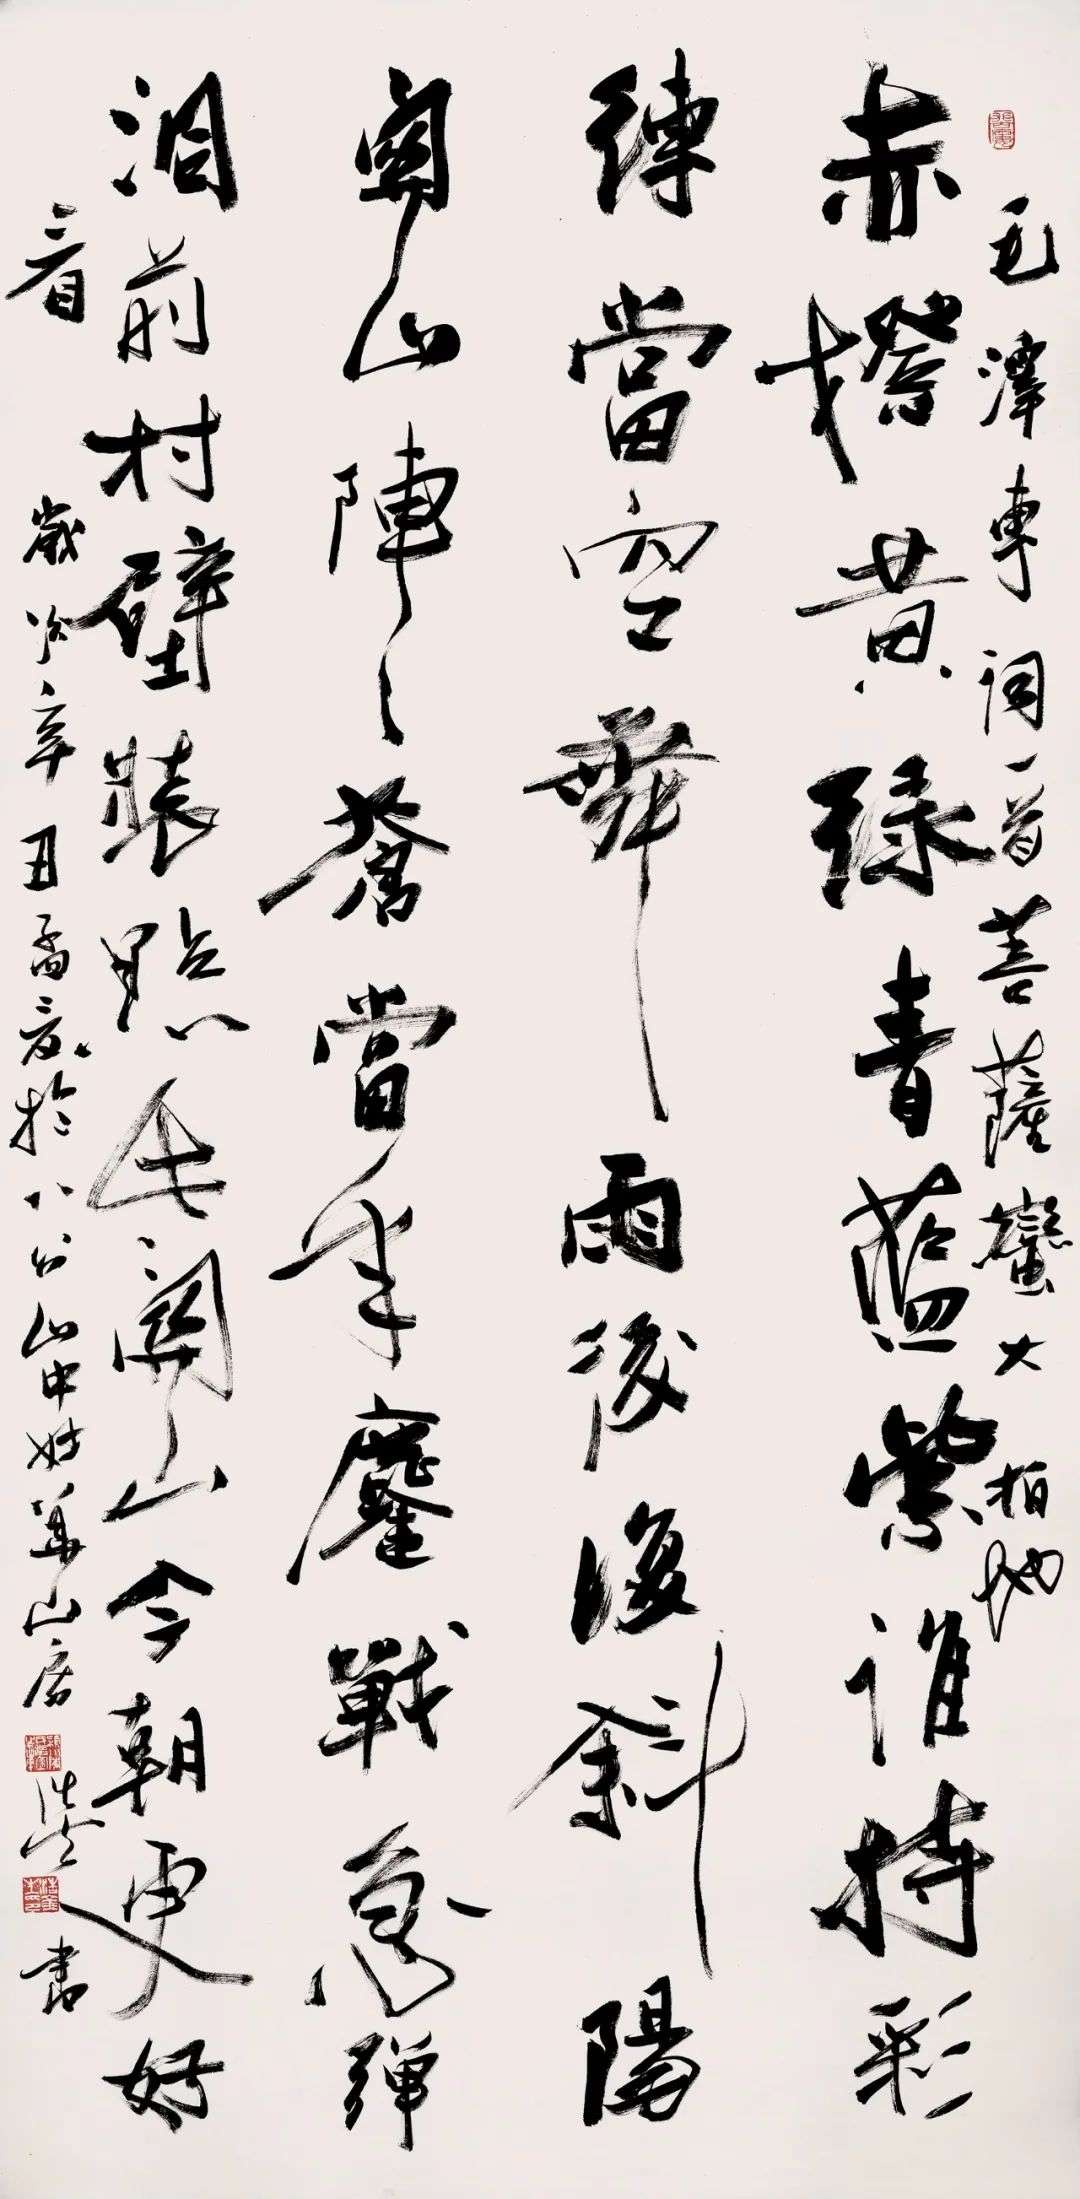 毛澤東詞一首菩薩蠻大柏地
赤橙黄綠青藍紫誰持彩
練當空舞雨後復斜陽
關山陣〻蒼當年鏖戰急彈
洞前村壁裝點此關山今朝更好
看
歲次辛丑孟夏於八公山中妙華山房書